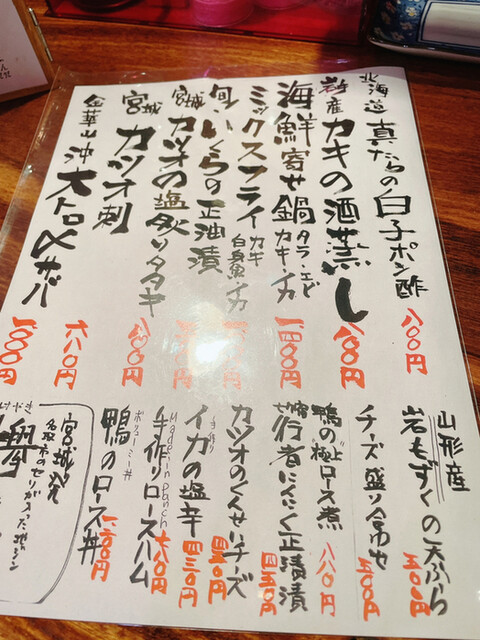 北海道 真たらの白子ポン酢 八〇〇円
岩手産 カキの酒蒸し 八〇〇円
海鮮寄せ鍋 タラ・エビ カキ・イカ 一、四〇〇円
ミックスフライ カキ 白身魚・イカ
旬いくらの正油漬
宮城 カツオの塩炙りタタキ 八〇〇円
宮城 カツオ刺 六八〇円
金華山沖 大トロ〆サバ 一、〇〇〇円
山形産 岩もずくの天ぷら 五〇〇円
チーズ盛り合せ 五〇〇円
鴨の"極上"ロース煮 八八〇円
行者にんにく正油漬 四五〇円
カツオのくんせいチーズ 四五〇円
手作り イカの塩辛 四三〇円
手作りロースハム 六八〇円
ボリューミー丼 鴨のロース丼
宮城発
名取市のセリが入った地ジン